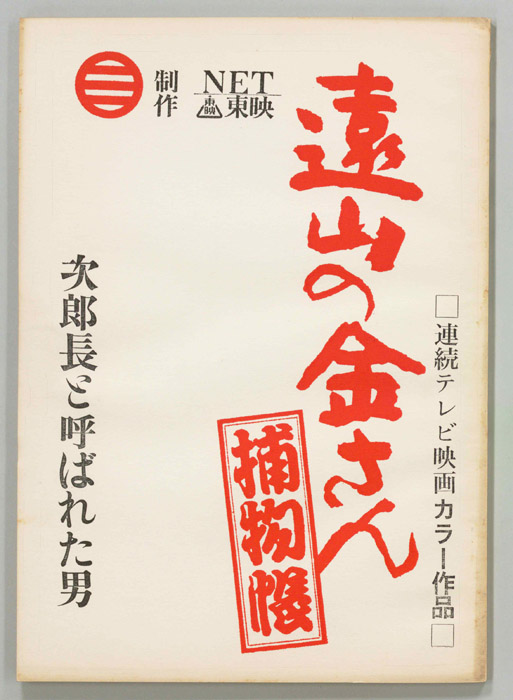 □連続テレビ映画カラー作品□
遠山の金さん
捕物帳
NET
東映
東映
制作
次郎長と呼ばれた男